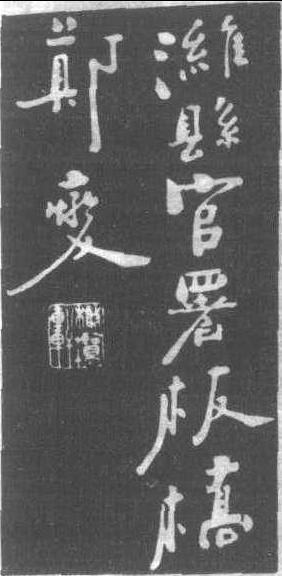 濰縣官署板橋
鄭燮